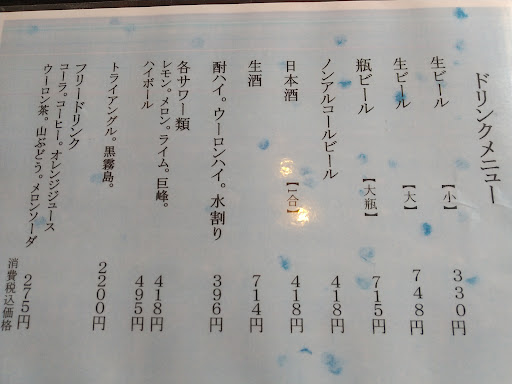 ドリンクメニュー
生ビール 【小】 330円
生ビール 【大】 748円
瓶ビール 【大瓶】 715円
ノンアルコールビール 418円
日本酒 【一合】 418円
生酒 714円
酎ハイ。ウーロンハイ。水割り 396円
各サワー類
レモン。メロン。ライム。巨峰。 418円
ハイボール 495円
トライアングル。黒霧島。 2200円
フリードリンク
コーラ。コーヒー。オレンジジュース
ウーロン茶。山ぶどう。メロンソーダ 275円
消費税込価格